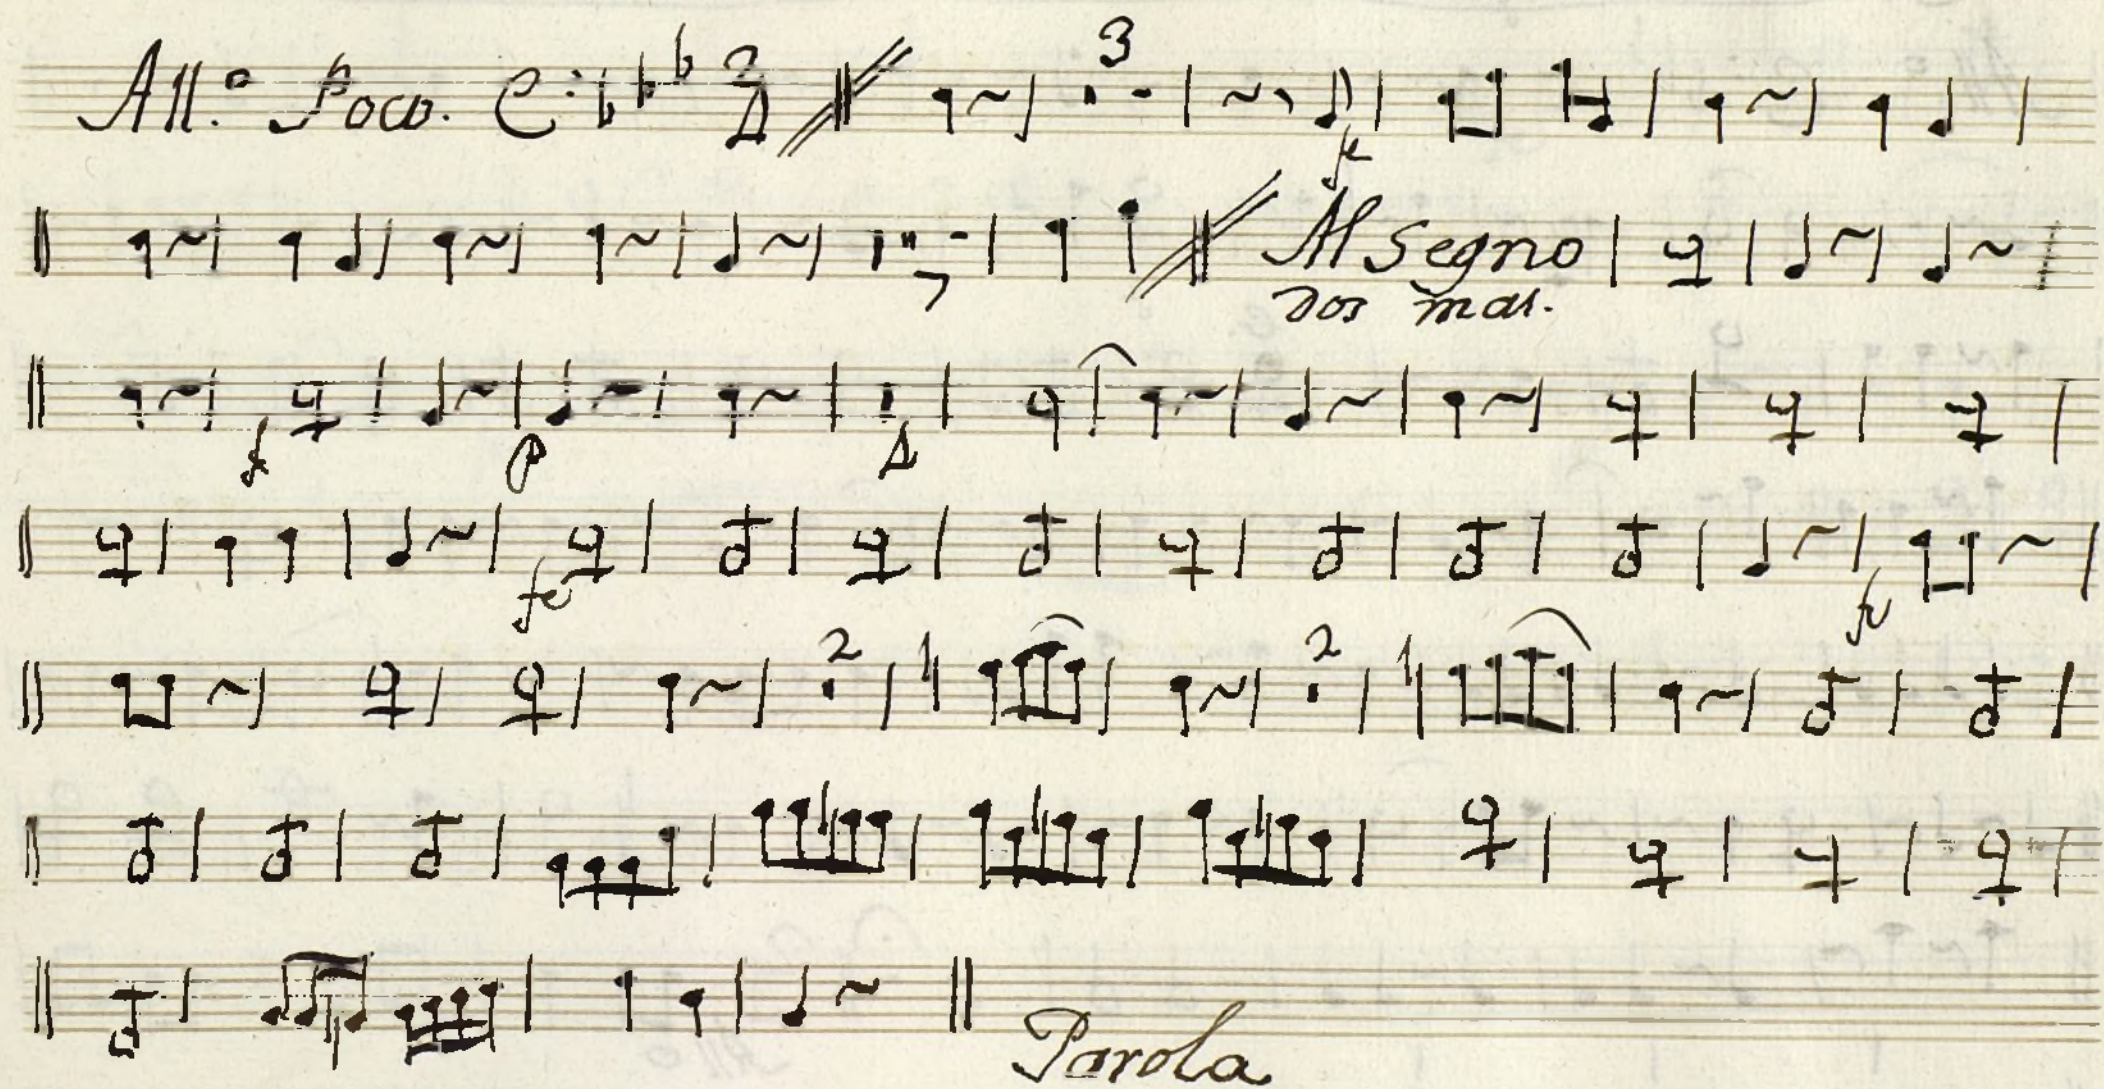 All.º Poco. 2/4
3
fe
Al Segno
Dos mas.
f P
fe fe
2 2
Parola